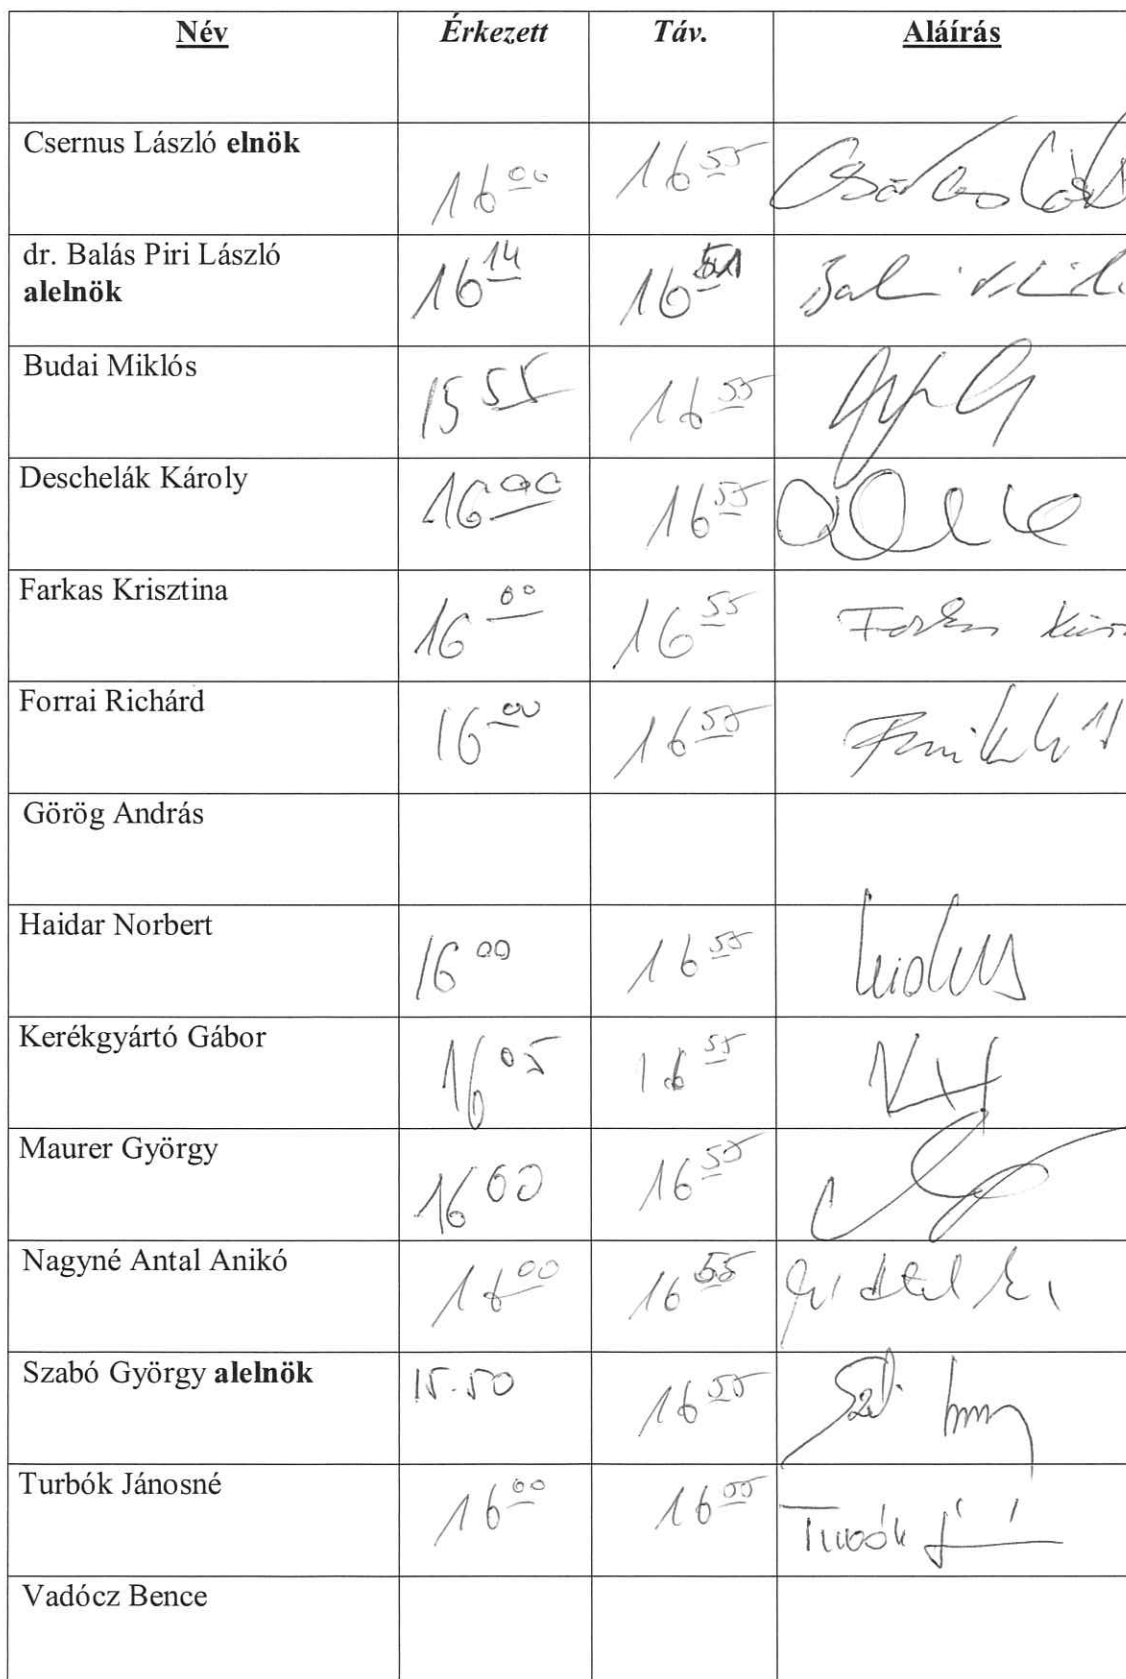 Név Érkezett Táv. Aláírás
Csernus László elnök 16 00 16 55
dr. Balás Piri László
alelnök 16 14 16 51
Budai Miklós 15 55 16 55
Deschelák Károly 16 00 16 55
Farkas Krisztina 16 00 16 55
Forrai Richárd 16 00 16 55
Görög András
Haidar Norbert 16 00 16 55
Kerékgyártó Gábor 16 05 16 55
Maurer György 16 00 16 55
Nagyné Antal Anikó 16 00 16 55
Szabó György alelnök 15.50 16 55
Turbók Jánosné 16 00 16 55
Vadócz Bence